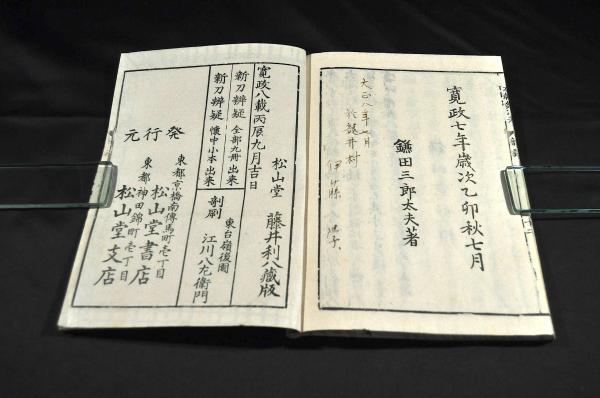 寛政七年歳次乙卯秋七月
鎌田三郎太夫著
大正八年七月
於龍井村
伊藤
寛政八載丙辰九月吉日
松山堂 藤井利八藏版
新刀辨疑 全部九冊 出来
新刀辨疑 懐中小本 出来
剞劂
東台嶺後園
江川八左衛門
発行元
東都京橋南傳馬町壱丁目
松山堂書店
東都神田錦町壱丁目
松山堂支店